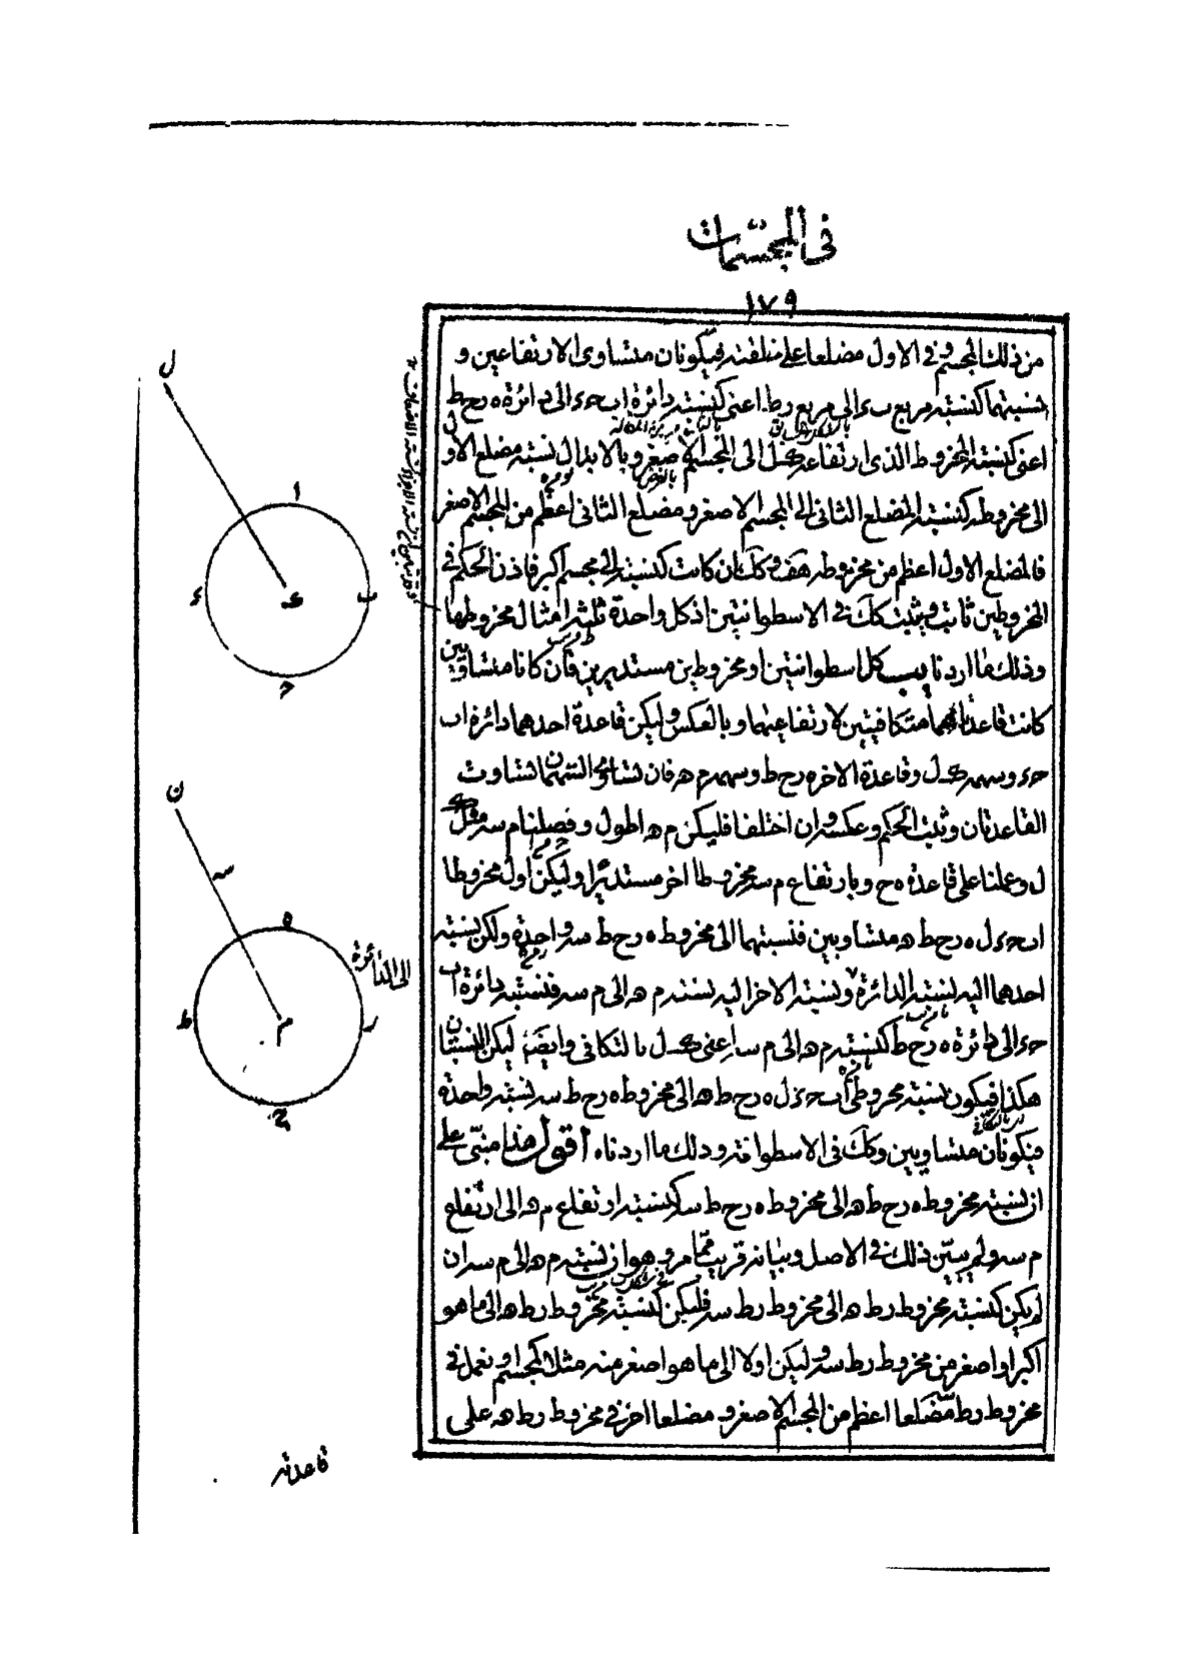 في المجسمات
١٧٩
من ذلك المجسم و في الاول مضلعا على مثلثته فيكونان متساوى الارتفاعين و
نسبتهما كنسبة مربع ب ء الى مربع ر ط اعنى كنسبة دائرة ا ب ح ء الى دائرة ه ر ح ط
اعنى كنسبة المخروط الذى ارتفاعه ل الى المجسم الاصغر و بالابدال نسبة مضلع الاول
الى مخروطه كنسبة المضلع الثانى الى المجسم الاصغر و مضلع الثانى اعظم من المجسم الاصغر
فالمضلع الاول اعظم من مخروطه هف و كك ان كانت كنسبته الى مجسم اكبر فاذن الحكم في
المخروطين ثابت و يثبت كك في الاسطوانتين اذ كل واحدة ثلثة امثال مخروطها
و ذلك ما اردناه يب كل اسطوانتين او مخروطين مستديرين فان كانا متساويين
كانت قاعدتاهما متكافيتين لارتفاعيهما و بالعكس و ليكن قاعدة احدهما دائرة ا ب
ح ء و سهمه ل و قاعدة الاخر ه ر ح ط و سهمه م ه فان تساوى السهمان تساوت
القاعدتان و ثبت الحكم و عكسه و ان اختلفا فليكن م ه اطول و فصلنا م س مثل
ل و عملنا على قاعدة ه ح و بارتفاع م س مخروطا اخر مستديرا و ليكن اولا مخروطا
ا ب ح ء ل ه ر ح ط ه متساويين فنسبتهما الى مخروط ه ر ح ط س واحدة و لكن نسبة
احدهما اليه نسبة الدائرة و نسبة الاخر اليه نسبة م ه الى م س فنسبة دائرة ا ب
الى الدائرة
ح ء الى دائرة ه ر ح ط كنسبة م ه الى م س اعنى ل بالتكافى و ايضا ليكن النسبتان
هكذا فيكون نسبة مخروطى ا ب ح ء ل ه ر ح ط ه الى مخروط ه ر ح ط س نسبة واحدة
فيكونان متساويين و كك في الاسطوانة و ذلك ما اردناه اقول هذا مبنى على
ان نسبة مخروط ه ر ح ط ه الى مخروط ه ر ح ط س كنسبة ارتفاع م ه الى ارتفاع
م س و لم يبين ذلك في الاصل و بيانه قريب مما مر و هو ان نسبة م ه الى م س ان
لم يكن كنسبة مخروط ر ط ه الى مخروط ر ط س فليكن كنسبة مخروط ر ط ه الى ما هو
اكبر او اصغر من مخروط ر ط س و ليكن اولا الى ما هو اصغر منه مثل المجسم و نعمل في
مخروط ر ط س مضلعا اعظم من المجسم الاصغر و مضلعا اخر في مخروط ر ط ه على
قاعدته
ل
ا
ب
ء
ح
ن
س
ه
ر
ط
م
ح